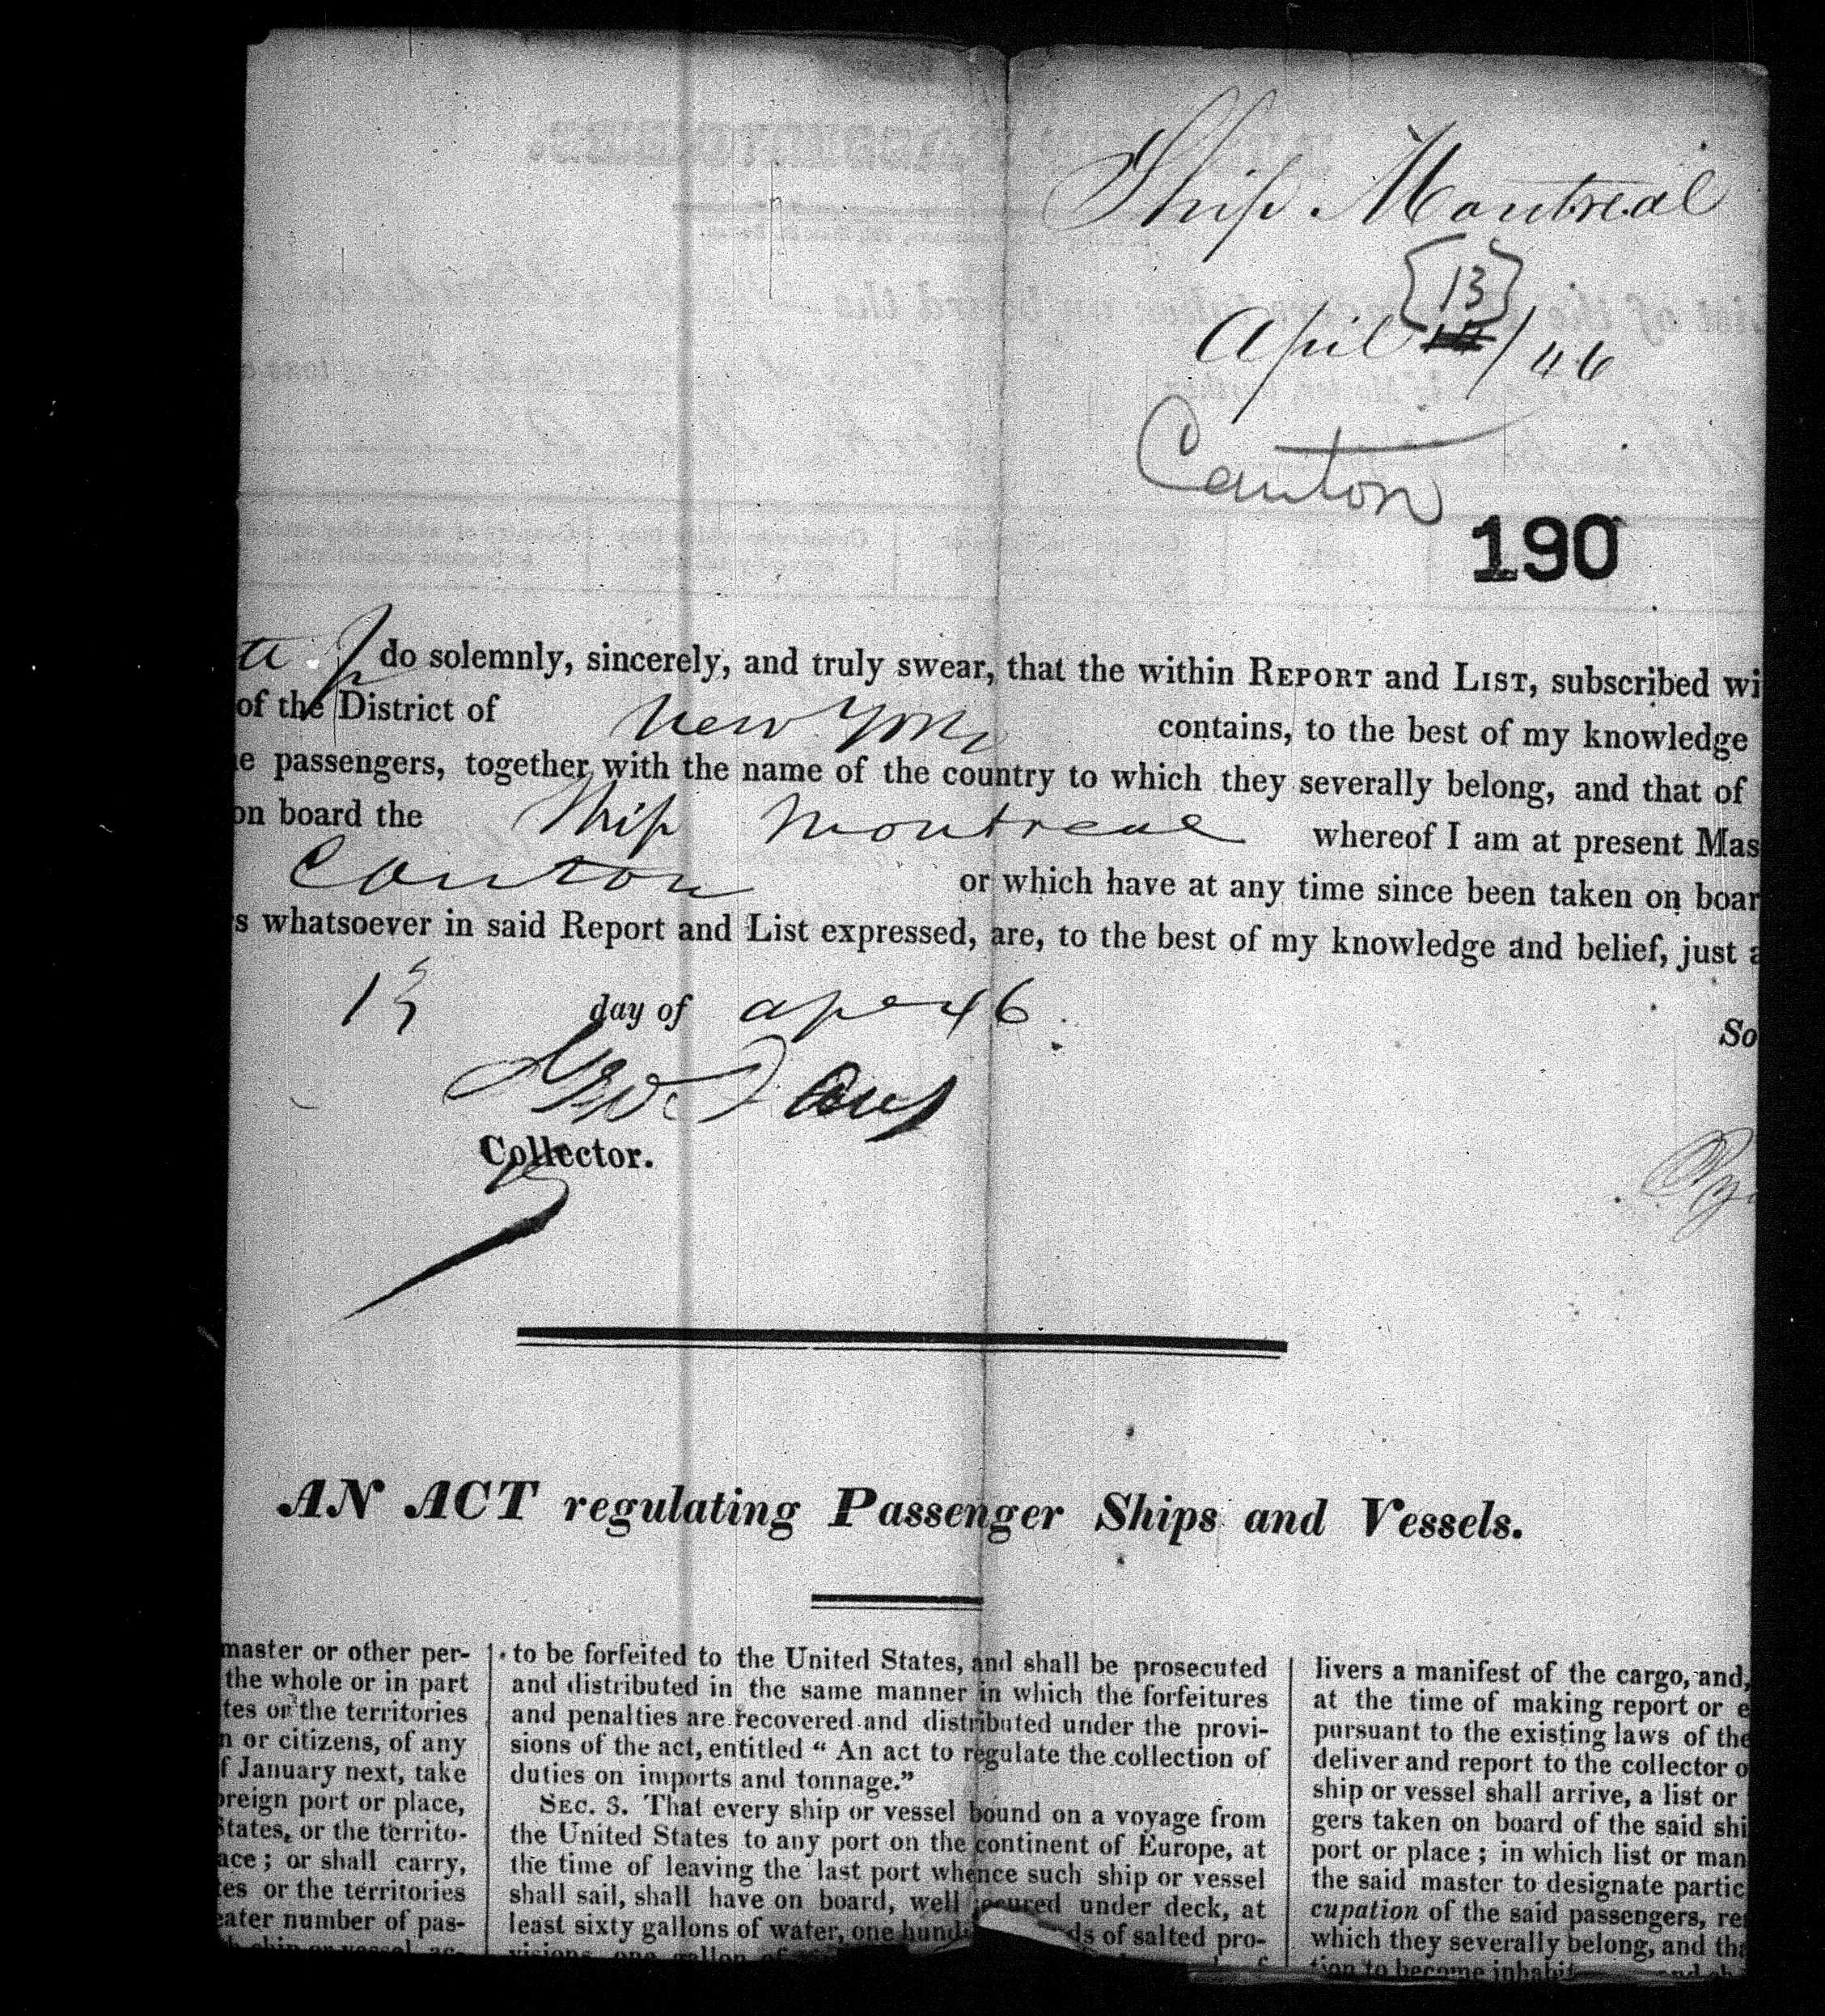 Ship Montreal
{13}
April /46
Canton
190
do solemnly, sincerely, and truly swear, that the within REPORT and LIST, subscribed wi
of the District of New York contains, to the best of my knowledge
e passengers, together with the name of the country to which they severally belong, and that of
on board the Ship Montreal whereof I am at present Mas
Canton or which have at any time since been taken on boar
s whatsoever in said Report and List expressed, are, to the best of my knowledge and belief, just a
13 day of ap 46
So
Collector.
AN ACT regulating Passenger Ships and Vessels.
master or other per-
the whole or in part
tes or the territories
n or citizens, of any
f January next, take
oreign port or place,
States, or the territo-
ace; or shall carry,
tes or the territories
eater number of pas-
to be forfeited to the United States, and shall be prosecuted
and distributed in the same manner in which the forfeitures
and penalties are recovered and distributed under the provi-
sions of the act, entitled “ An act to regulate the collection of
duties on imports and tonnage.”
SEC. 3. That every ship or vessel bound on a voyage from
the United States to any port on the continent of Europe, at
the time of leaving the last port whence such ship or vessel
shall sail, shall have on board, well secured under deck, at
least sixty gallons of water, one hund ds of salted pro-
visions, one gallon of
livers a manifest of the cargo, and,
at the time of making report or e
pursuant to the existing laws of the
deliver and report to the collector o
ship or vessel shall arrive, a list or
gers taken on board of the said shi
port or place; in which list or man
the said master to designate partic
cupation of the said passengers, re
which they severally belong, and tha
tion to become inhabit